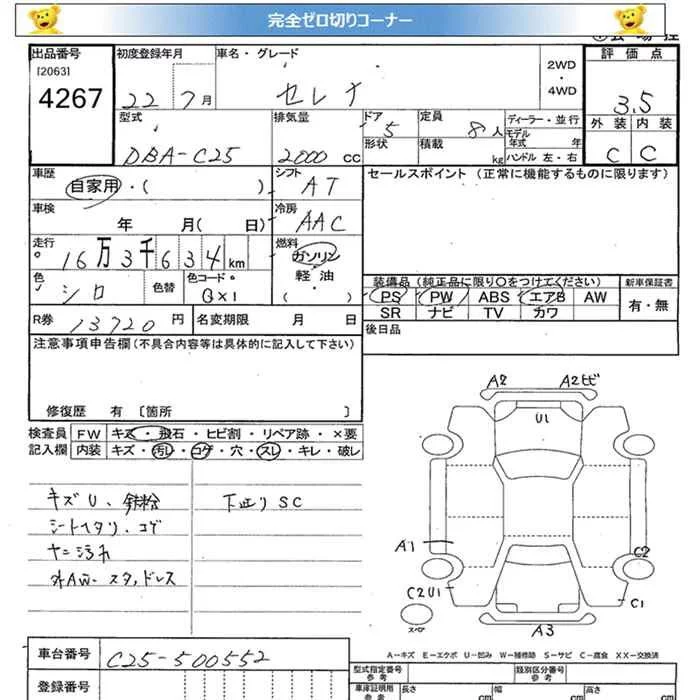 完全ゼロ切りコーナー
出品番号 初度登録年月 車名・グレード 評価点
[2063] 2WD
4267 22 7月 セレナ ・ 3.5
4WD
型式 排気量 ドア 定員 ディーラー・並行 外装 内装
DBA-C25 2000 cc 5 8人 モデル年式 年 C C
形状 積載 kg ハンドル 左・右
車歴 自家用・( ) シフト AT セールスポイント (正常に機能するものに限ります)
車検 年 月( 日) 冷房 AAC
走行 16万3千634km 燃料 ガソリン 軽油 ( )
色 シロ 色替 色コード QX1
装備品 (純正品に限り○をつけてください) 新車保証書
PS PW ABS エアB AW 有・無
SR ナビ TV カワ
R券 13720円 名変期限 月 日 後日品
注意事項申告欄(不具合内容等は具体的に記入して下さい)
修復歴 有 [箇所 ]
検査員 FW キズ・飛石・ヒビ割・リペア跡・×要
記入欄 内装 キズ・汚レ・コゲ・穴・スレ・キレ・破レ
キズU、鉄粉 下廻りSC
シートヘタリ、コゲ
ヤニ汚れ
外AW・スタッドレス
A2 A2ビ
U1
A1 C2
C2U1 C1
スペア
A3
A－キズ E－エクボ U－凹み W－補修跡 S－サビ C－腐食 XX－交換済
車台番号 C25-500552
登録番号
型式指定番号 参考 類別区分番号 参考
車庫証明用 参考 長さ cm 幅 cm 高さ cm